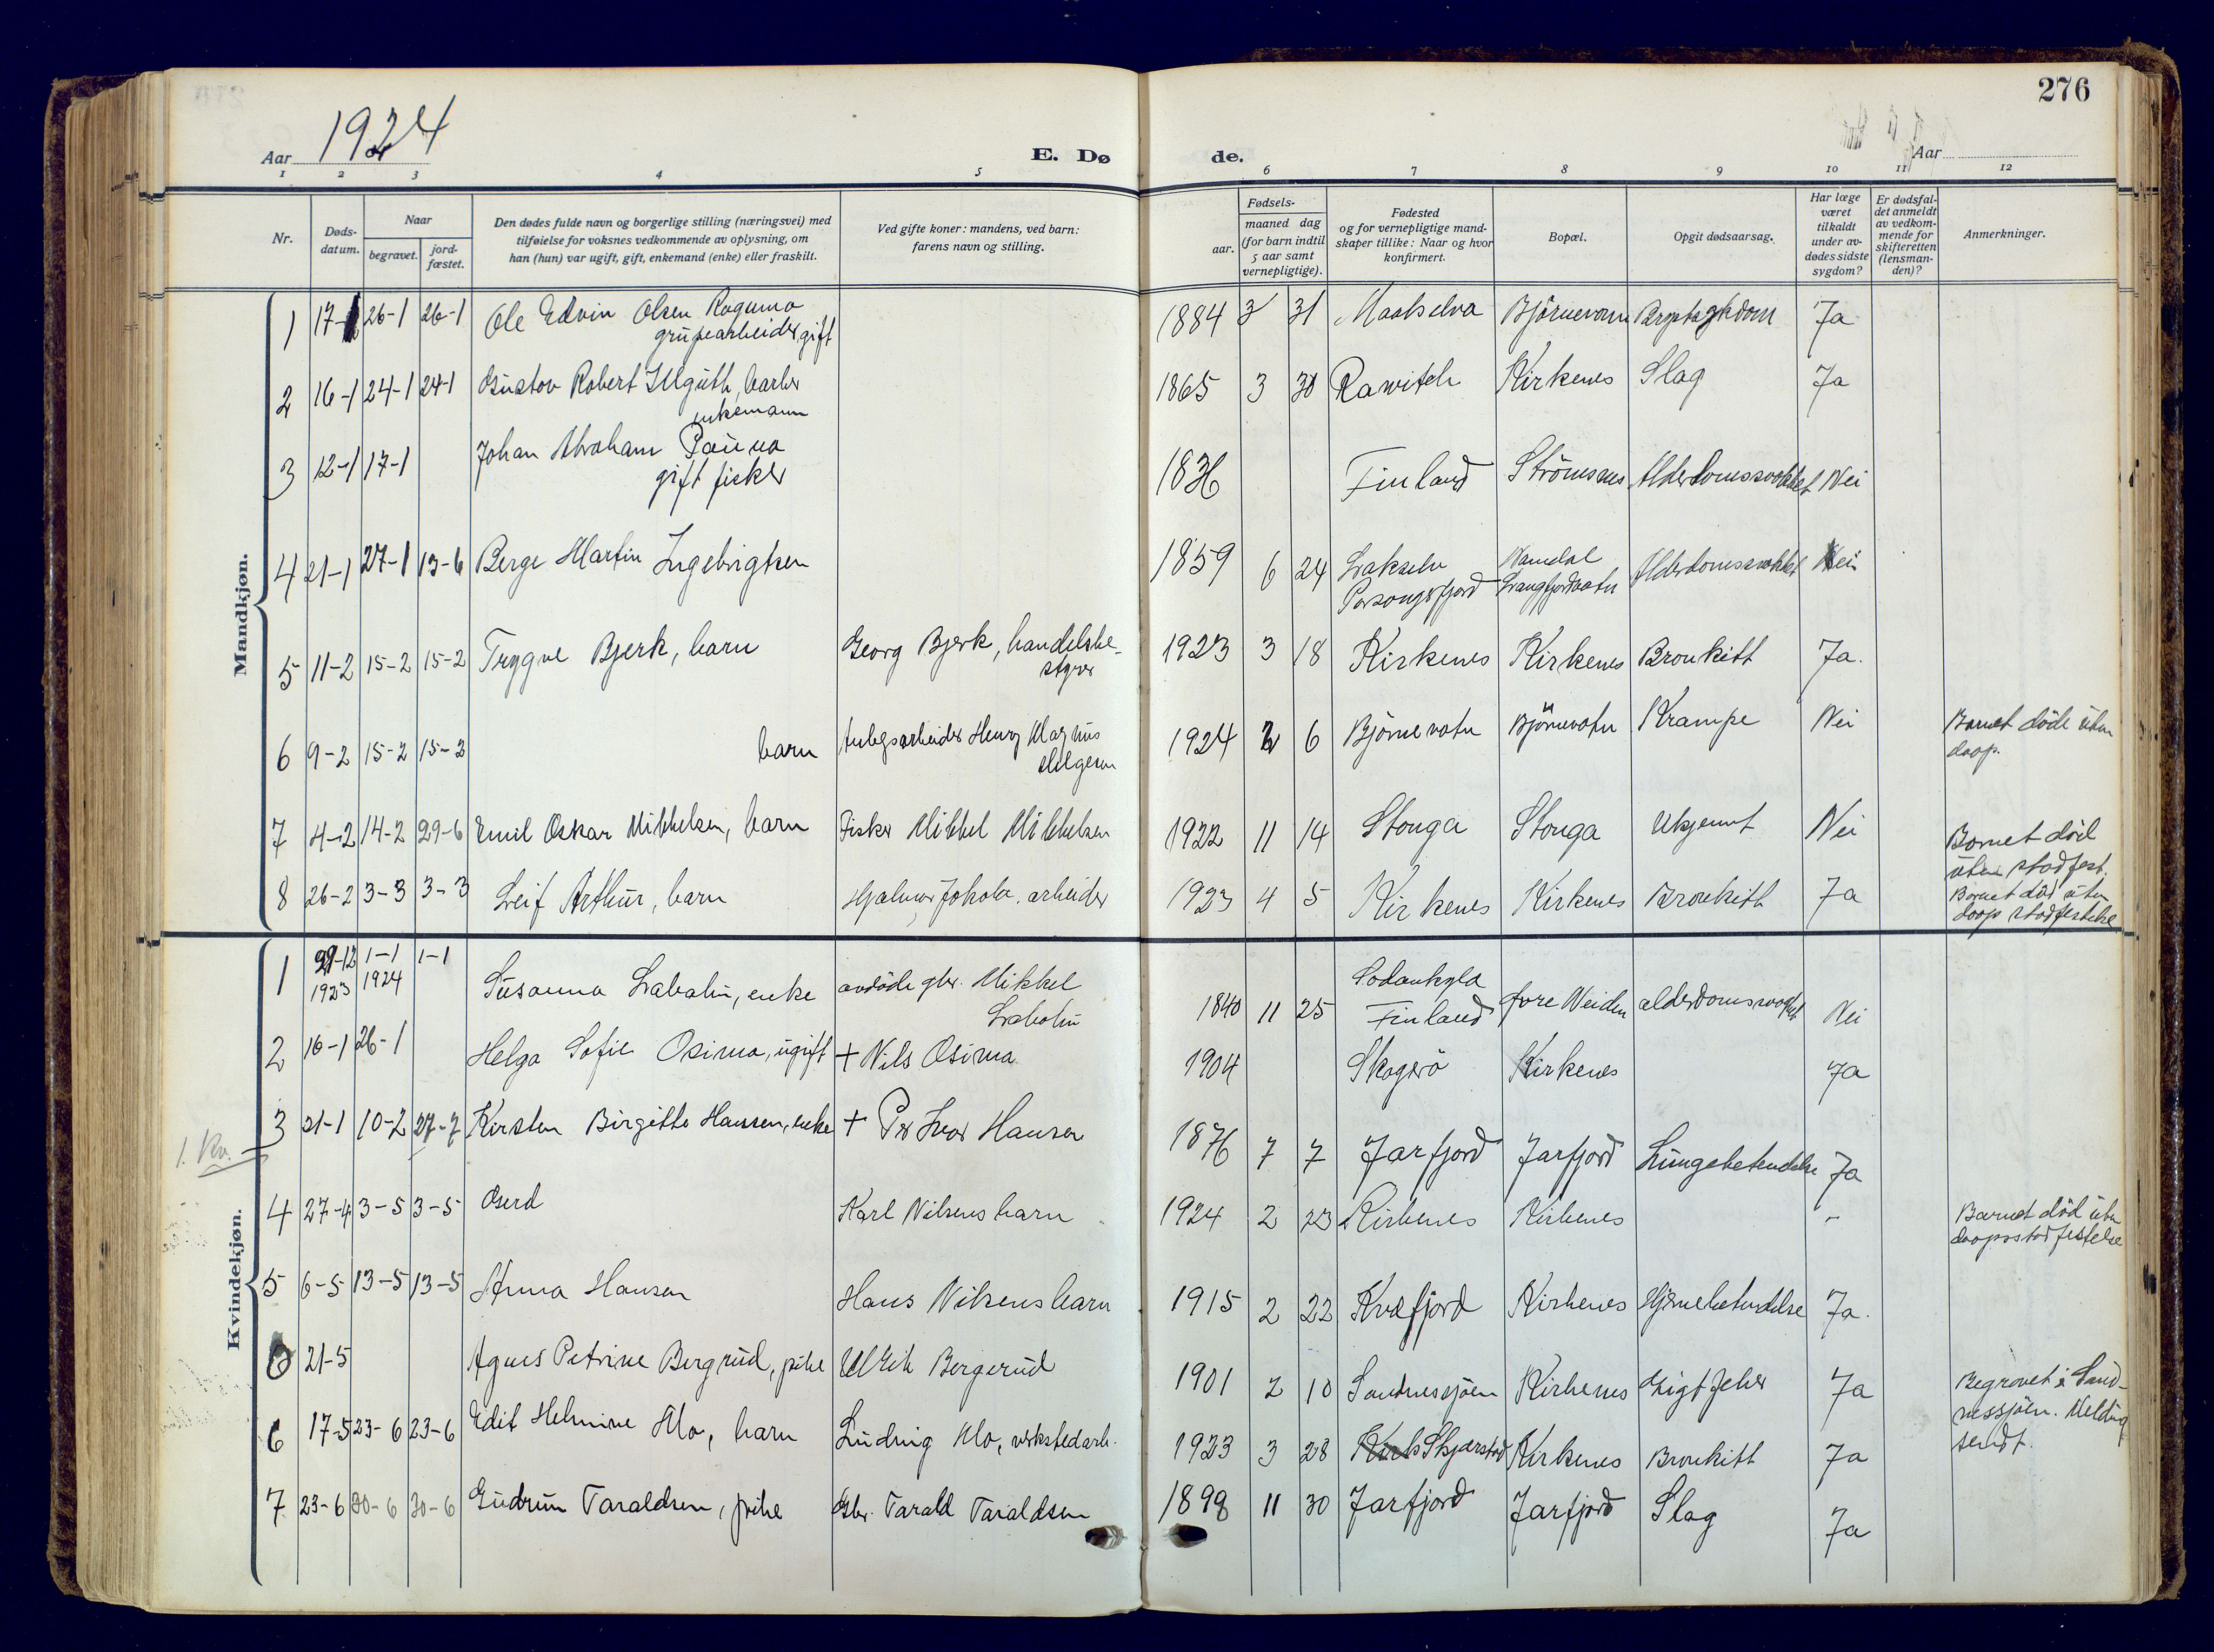 276
Aar 1924
E. Dø
de.
Aar
1 2 3 4 5 6 7 8 9 10 11 12
Nr.
Døds-
datum.
Naar
begravet.
jord-
fæstet.
Den dødes fulde navn og borgerlige stilling (næringsvei) med
tilføielse for voksnes vedkommende av oplysning, om
han (hun) var ugift, gift, enkemand (enke) eller fraskilt.
Ved gifte koner: mandens, ved barn:
farens navn og stilling.
Fødsels-
aar.
maaned dag
(for barn indtil
5 aar samt
vernepligtige).
Fødested
og for vernepligtige mand-
skaper tillike: Naar og hvor
konfirmert.
Bopæl.
Opgit dødsaarsag.
Har læge
været
tilkaldt
under av-
dødes sidste
sygdom?
Er dødsfal-
det anmeldt
av vedkom-
mende for
skifteretten
(lensman-
den)?
Anmerkninger.
Mandkjøn.
1 17-1 26-1 26-1 Ole Edvin Olsen 1884 3 31 Maalselva Ja
grubearbeider, gift
2 16-1 24-1 24-1 Gustav Robert Illguth, barber 1865 3 30 Rawitch Kirkenes Slag Ja
enkemann
3 12-1 17-1 Johan Abraham 1836 Finland Strömsnes Alderdomssvakhet Nei
gift fisker
4 21-1 27-1 13-6 Berge Martin Ingebrigtsen 1859 6 24 Lakselv Namdal Alderdomssvakhet Nei
Porsangerfjord Langfjordvatn
5 11-2 15-2 15-2 Trygve Bjerk, barn Georg Bjerk, handelsbe- 1923 3 18 Kirkenes Kirkenes Bronkitt Ja.
styrer
6 9-2 15-2 15-2 barn Anlegsarbeider Henry Magnus 1924 2 6 Björnevatn Björnevatn Krampe Nei Barnet döde uten
Helgesen daap.
7 4-2 14-2 29-6 Emil Oskar Mikkelsen, barn Fisker Mikkel Mikkelsen 1922 11 14 Stonga Stonga Ukjennt Nei Barnet död
uten stadfest.
8 26-2 3-3 3-3 Leif Arthur, barn Hjalmar Jokola, arbeider 1923 4 5 Kirkenes Kirkenes Bronkitt Ja Barnet död uten
daap stadfestelse
Kvindekjøn.
1 29-12 1-1 1-1 Susanna Labahu, enke avdöde gbr. Mikkel 1840 11 25 Sodankyla Övre Neiden alderdomssvakhet Nei
1923 1924 Labahu Finland
2 16-1 26-1 Helga Sofie Osima, ugift + Nils Osima 1904 Skogerö Kirkenes Ja
3 21-1 10-2 27-7 Kirsten Birgitte Hansen, enke + Per Ivar Hansen 1876 7 7 Jarfjord Jarfjord Lungebetendelse Ja
1. Kv.
4 27-4 3-5 3-5 Karl Nilsens barn 1924 2 23 Kirkenes Kirkenes - Barnet död uten
daapsstadfestelse
5 6-5 13-5 13-5 Anna Hansen Hans Nilsens barn 1915 2 22 Kvæfjord Kirkenes Hjernebetendelse Ja.
6 21-5 Agnes Petrine Bergrud, pike Ulrik Bergerud 1901 2 10 Sandnessjöen Kirkenes Gigtfeber Ja Begravet i Sand-
nessjöen. Melding
sendt.
6 17-5 23-6 23-6 Edit Helmine Mo, barn Ludvig Mo, verkstedarb. 1923 3 28 Skjerstad Kirkenes Bronkitt Ja
7 23-6 30-6 30-6 Gudrun Taraldsen, pike Gbr. Tarald Taraldsen 1898 11 30 Jarfjord Jarfjord Slag Ja